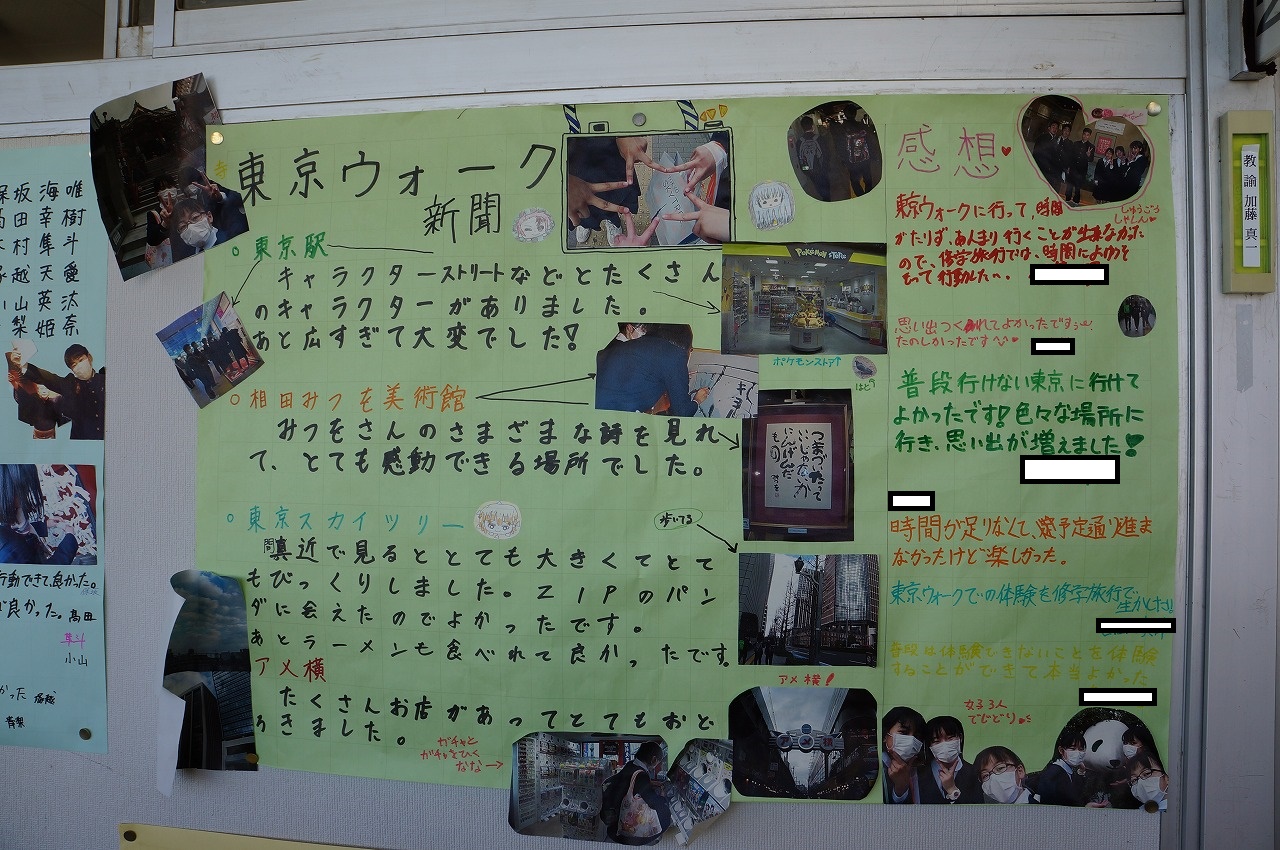 東京ウォーク
新聞
東京駅
キャラクターストリートなどとたくさん
のキャラクターがありました。
あと広すぎて大変でした!
相田みつを美術館
みつをさんのさまざまな詩を見れ
て、とても感動できる場所でした。
東京スカイツリー
間真近で見るととても大きくてとて
もびっくりしました。ZIPのパン
ダに会えたのでよかったです。
あとラーメンも食べれて良かったです。
アメ横
たくさんお店があってとてもおど
ろきました。
ガチャと
ガチャをひく
なな→
POKÉMON STORE
ポケモンストア↑
はと
つまづいたって
いいじゃないか
にんげんだ
もの
歩いてる
アメ横!
感想
しゅうごう
しゃしん
東京ウォークに行って、時間
がたりず、あんまり行くことが出来なかった
ので、修学旅行では、時間によゆうを
もって行動したい。
思い出つくれてよかったです
たのしかったです
普段行けない東京に行けて
よかったです!色々な場所に
行き、思い出が増えました!
時間が足りなくて、予定通り進ま
なかったけど楽しかった。
東京ウォークでの体験を修学旅行で
生かしたい!
普段は体験できないことを体験
することができて本当よかった
女子3人
でじどり
教諭 加藤 真一
坂 海 唯
田 幸 樹
村 隼 斗
越 天 愛
山 英 汰
梨 姫 奈
行動できて、良かった。
良かった。高田
隼斗
小山
かった
有梨